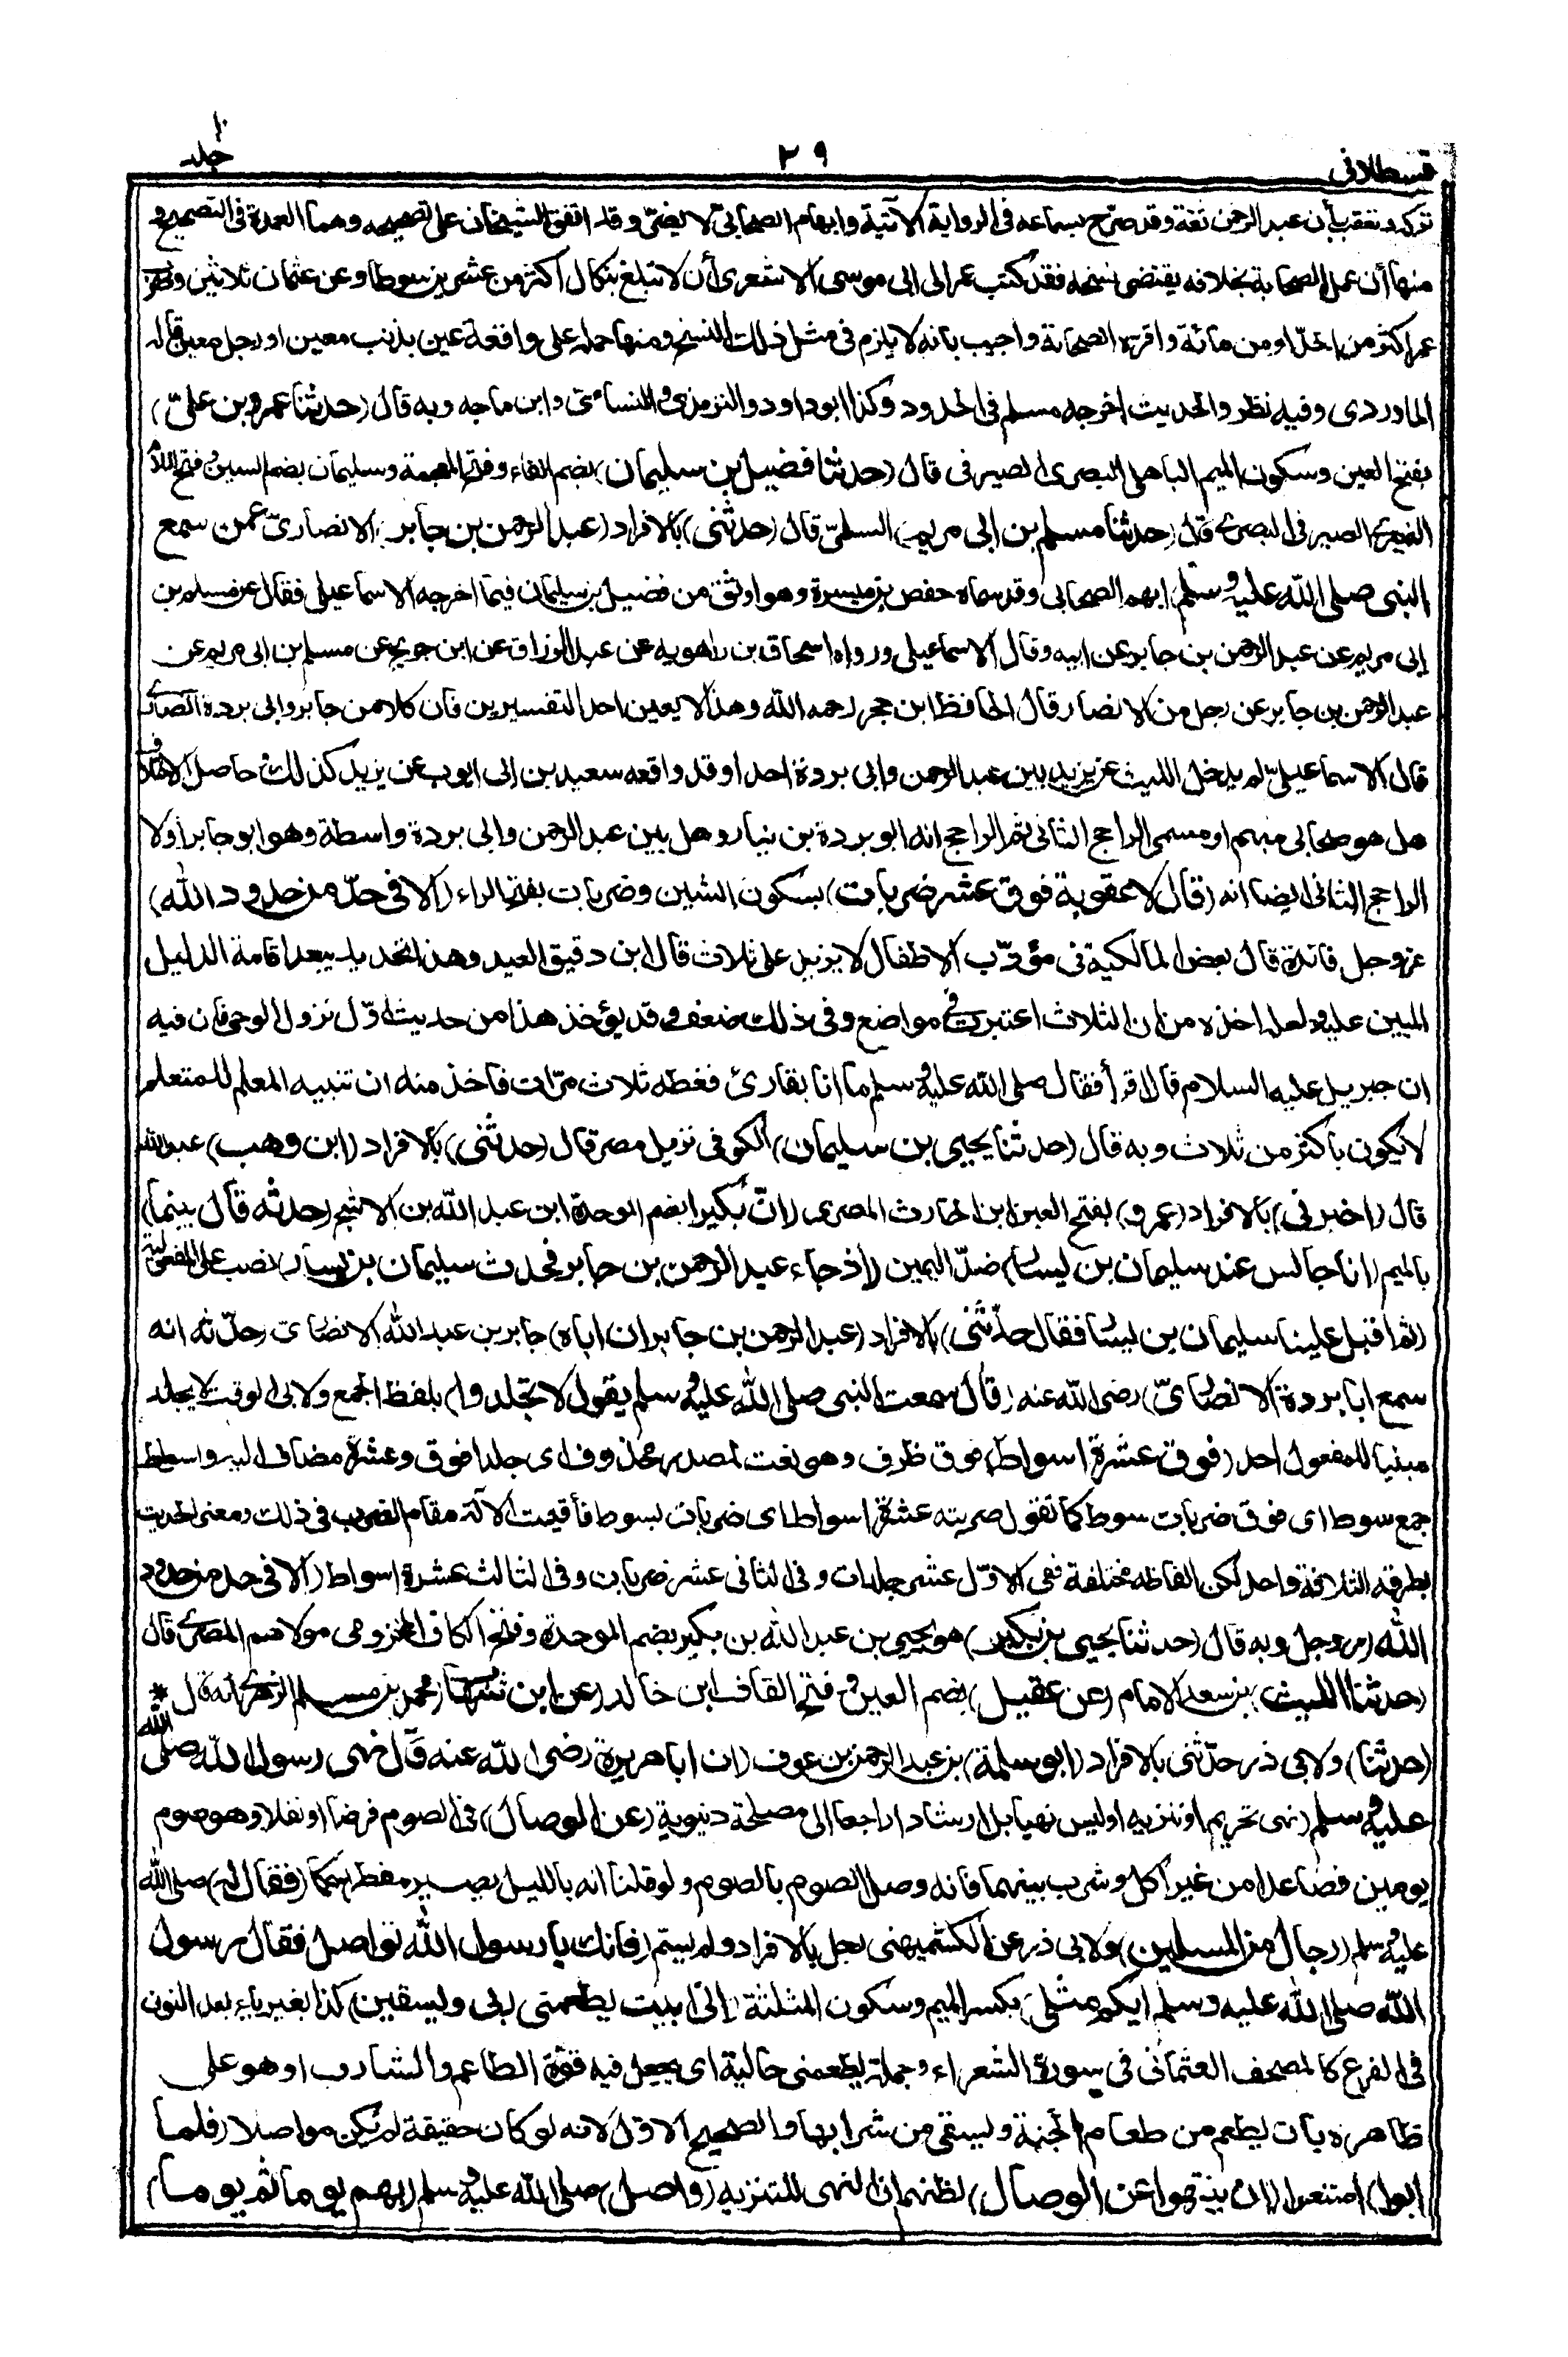 قسطلاني
٣٩
جلد ١٠
تركه وتعقب بأن عبد الرحمن ثقة وقد صرّح بسماعه في الرواية الآتية وابهام الصحابيّ لا يضرّ وقد اتفق الشيخان على تصحيحه وهما العمدة في التصحيح و
منها أن عمل الصحابة بخلافه يقتضى نسخه فقد كتب عمر الى ابى موسى الاشعرى أن لا تبلغ بنكال اكثر من عشرين سوطا وعن عثمان ثلاثين وضرب
عمر اكثر من الحدّ او من مائة واقره الصحابة واجيب بانه لا يلزم في مثل ذلك النسخ ومنها حمله على واقعة عين بذنب معين او رجل معين قاله
الماوردى وفيه نظر والحديث اخرجه مسلم في الحدود وكذا ابو داود والترمذى والنسائى وابن ماجه وبه قال (حدثنا عمرو بن علىّ)
بفتح العين وسكون الميم الباهلى البصرى الصيرفى قال (حدثنا فضيل بن سليمان) بضم الفاء وفتح المعجمة وسليمان بضم السين وفتح اللام
النميرى الصيرفى البصرى قال (حدثنا مسلم بن ابى مريم) السلمىّ قال (حدثنى) بالافراد (عبد الرحمن بن جابر) الانصارىّ عمن سمع
النبى صلى الله عليه وسلم ابهم الصحابى وقد سماه حفص بن ميسرة وهو اوثق من فضيل بن سليمان فيما اخرجه الاسماعيلى فقال عن مسلم بن
ابى مريم عن عبد الرحمن بن جابر عن ابيه وقال الاسماعيلى ورواه اسحاق بن راهويه عن عبد الرزاق عن ابن جريج عن مسلم بن ابى مريم عن
عبد الرحمن بن جابر عن رجل من الانصار قال الحافظ ابن حجر رحمه الله وهذا لا يعين احد التفسيرين فان كلا من جابر وابى بردة انصارى
قال الاسماعيلىّ لم يدخل الليث عن يزيد بين عبد الرحمن وابى بردة احدا وقد وافقه سعيد بن ابى ايوب عن يزيد كذلك حاصل الاختلاف
هل هو صحابى مبهم او مسمى الراجح الثانى ثم الراجح انه ابو بردة بن نيار وهل بين عبد الرحمن وابى بردة واسطة وهو ابو جابر اولا
الراجح الثانى ايضا انه (قال لا عقوبة فوق عشر ضربات) بسكون الشين وضربات بفتح الراء (الا في حدّ من حدود الله)
عز وجل فائدة قال بعض المالكية في مؤدّب الاطفال لا يزيد على ثلاث قال ابن دقيق العيد وهذا تحديد يبعد اقامة الدليل
المبين عليه ولعله اخذه من ان الثلاث اعتبرت في مواضع وفي ذلك ضعف وقد يؤخذ هذا من حديث اوّل نزول الوحى فان فيه
ان جبريل عليه السلام قال اقرأ فقال صلى الله عليه وسلم ما انا بقارئ فغطه ثلاث مرّات فاخذ منه ان تنبيه المعلم للمتعلم
لا يكون باكثر من ثلاث وبه قال (حدثنا يحيى بن سليمان) الكوفى نزيل مصر قال (حدثنى) بالافراد (ابن وهب) عبد الله
قال (اخبرنى) بالافراد (عمرو) بفتح العين ابن الحارث المصرى (انّ بكيرا) بضم الموحدة ابن عبد الله بن الاشج (حدثه قال بينما)
بالميم (انا جالس عند سليمان بن يسار) ضدّ اليمين (اذ جاء عبد الرحمن بن جابر فحدث سليمان بن يسار) نصب على المفعولية
(ثم اقبل علينا سليمان بن يسار فقال حدّثنى) بالافراد (عبد الرحمن بن جابر ان اباه) جابر بن عبد الله الانصارى (حدّثه انه
سمع ابا بردة الانصارىّ) رضى الله عنه (قال سمعت النبى صلى الله عليه وسلم يقول لا تجلدوا) بلفظ الجمع ولابى الوقت لا يجلد
مبنيا للمفعول احد (فوق عشرة اسواط) فوق ظرف وهو نعت لمصدر محذوف اى جلدا فوق وعشرة مضاف اليه واسواط
جمع سوط اى فوق ضربات سوط كما تقول ضربته عشرة اسواط اى ضربات بسوط فأقيمت الآلة مقام الضرب في ذلك ومعنى الحديث
بطرقه الثلاثة واحد لكن الفاظه مختلفة ففى الاوّل عشر جلدات وفي الثانى عشر ضربات وفي الثالث عشرة اسواط (الا في حد من حدود
الله) عز وجل وبه قال (حدثنا يحيى بن بكير) هو يحيى بن عبد الله بن بكير بضم الموحدة وفتح الكاف المخزومى مولاهم المصرى قال
(حدثنا الليث) بن سعد الامام (عن عقيل) بضم العين وفتح القاف ابن خالد (عن ابن شهاب) محمد بن مسلم الزهرى انه قال *
(حدثنا) ولابى ذر حدّثنى بالافراد (ابو سلمة) بن عبد الرحمن بن عوف (ان ابا هريرة رضى الله عنه قال نهى رسول الله صلى الله
عليه وسلم) نهى تحريم او تنزيه او ليس نهيا بل ارشادا راجعا الى مصلحة دنيوية (عن الوصال) في الصوم فرضا او نفلا وهو صوم
يومين فصاعدا من غير اكل وشرب بينهما فانه وصل الصوم بالصوم ولو قلنا انه بالليل يصير مفطرا حكما (فقال له) صلى الله
عليه وسلم (رجال من المسلمين) ولابى ذر عن الكشميهنى رجل بالافراد ولم يسم (فانك يا رسول الله تواصل فقال رسول
الله صلى الله عليه وسلم ايكم مثلى) بكسر الميم وسكون المثلثة (انى ابيت يطعمنى ربى ويسقين) كذا بغير ياء بعد النون
في الفرع كالمصحف العثمانى في سورة الشعراء وجملة يطعمنى حالية اى يجعل فيه قوّة الطاعم والشارب او هو على
ظاهره بان يطعم من طعام الجنة ويسقى من شرابها والصحيح الاوّل لانه لو كان حقيقة لم يكن مواصلا (فلما
ابوا) امتنعوا (ان ينتهوا عن الوصال) لظنهم ان النهى للتنزيه (واصل) صلى الله عليه وسلم (بهم يوما ثم يوما)